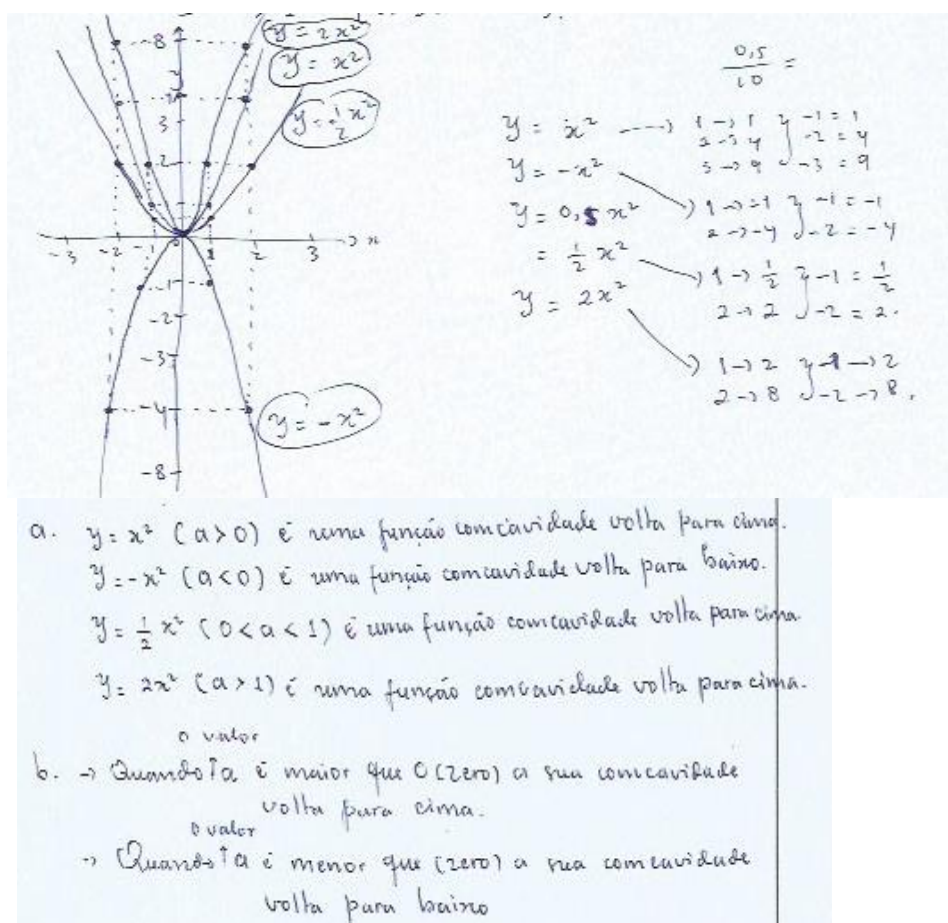 y = 2x²
y = x²
y = 1/2 x²
y = -x²
8
y
3
2
-3 -2 -1 0 1 2 3 → x
-1
-2
-3
-4
-8
0,5/10 =
y = x² → 1 → 1 } -1 = 1
2 → 4 } -2 = 4
3 → 9 } -3 = 9
y = -x² → 1 → -1 } -1 = -1
2 → -4 } -2 = -4
y = 0,5 x²
= 1/2 x² → 1 → 1/2 } -1 = 1/2
2 → 2 } -2 = 2.
y = 2x² → 1 → 2 } -1 → 2
2 → 8 } -2 → 8.
a. y = x² (a > 0) é uma função comcavidade volta para cima.
y = -x² (a < 0) é uma função comcavidade volta para baixo.
y = 1/2 x² (0 < a < 1) é uma função comcavidade volta para cima
y = 2x² (a > 1) é uma função comcavidade volta para cima.
o valor
b. → Quando ↑ a é maior que 0 (zero) a sua comcavidade
volta para cima.
o valor
→ Quando ↑ a é menor que (zero) a sua comcavidade
volta para baixo